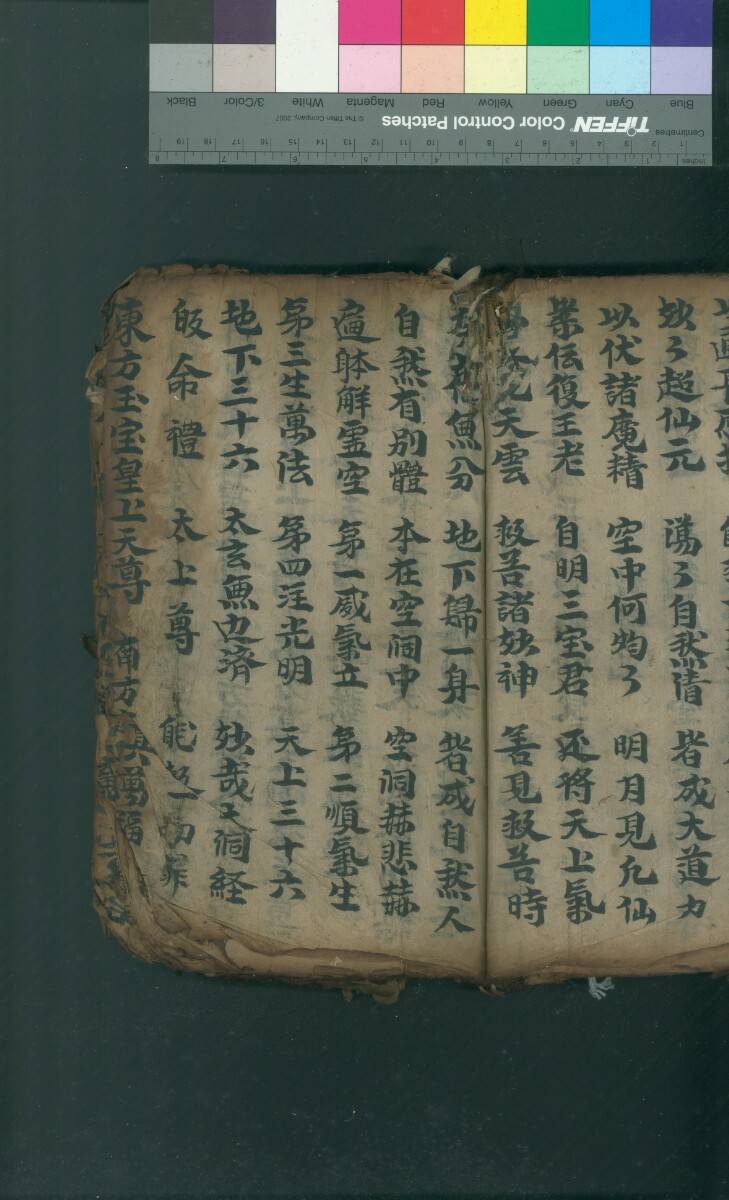 妙々超仙元 蕩々自然清 皆成大道力
以伏諸魔精 空中何灼々 明月見九仙
業伝復王老 自明三宝君 还将天上氣
天雲 救苦諸妙神 善見救苦時
無分 地下歸一身 皆成自然人
自然有別體 本在空洞中 空洞赫悲赫
遍躰解霊空 第一威氣立 第二順氣生
第三生萬法 第四注光明 天上三十六
地下三十六 太玄無边済 妙哉大洞経
皈命禮 太上尊 能 一切罪
東方玉宝皇上天尊 南方
TIFFEN® Color Control Patches
© The Tiffen Company, 2007
Centimetres
Inches
Blue Cyan Green Yellow Red Magenta White 3/Color Black
1 2 3 4 5 6 7 8 9 10 11 12 13 14 15 16 17 18 19
1 2 3 4 5 6 7 8